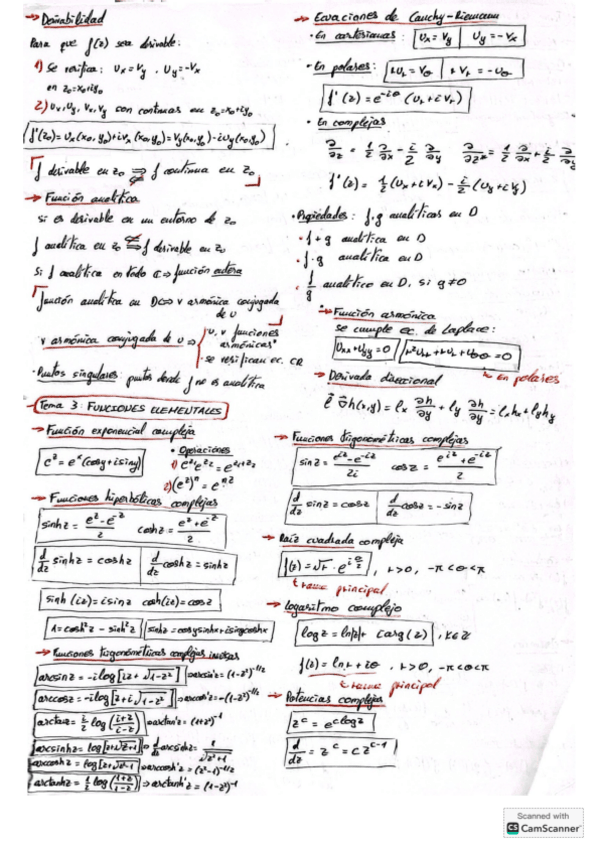 → Derivabilidad
Para que f(z) sea derivable:
1) Se verifica: Ux = Vy , Uy = -Vx
en z₀ = x₀+iy₀
2) Ux, Uy, Vx, Vy son continuas en z₀=x₀+iy₀
f'(z₀) = Ux(x₀,y₀)+iVx(x₀,y₀) = Vy(x₀,y₀) - iUy(x₀,y₀)
f derivable en z₀ ⇒ f continua en z₀
→ Función analítica
si es derivable en un entorno de z₀
f analítica en z₀ ⇒ f derivable en z₀
Si f analítica en todo ℂ ⇒ función entera
función analítica en D ⇔ v armónica conjugada
de u
v armónica conjugada de u ⇒ { u, v funciones
armónicas
· se verifican ec. CR
· Puntos singulares: puntos donde f no es analítica
→ Tema 3: FUNCIONES ELEMENTALES
→ Función exponencial compleja
e^z = e^x (cosy + i siny)
• Operaciones
1) e^z₁ e^z₂ = e^z₁+z₂
2) (e^z)^n = e^nz
→ Funciones hiperbólicas complejas
sinh z = (e^z - e^-z)/2 cosh z = (e^z + e^-z)/2
d/dz sinh z = cosh z | d/dz cosh z = sinh z
sinh (iz) = i sin z cosh(iz) = cos z
1 = cosh² z - sinh² z | sinh z = cosy sinhx + i siny coshx
→ Funciones trigonométricas complejas inversas
arcsin z = -i log [iz + √1-z²] ⇒ arcsin' z = (1-z²)^-1/2
arccos z = -i log [z + i√1-z²] ⇒ arccos' z = -(1-z²)^-1/2
arctan z = i/2 log ((i+z)/(i-z)) ⇒ arctan' z = (1+z²)^-1
arcsinh z = log [z + √z²+1] ⇒ d/dz arcsinh z = 1/√z²+1
arccosh z = log [z + √z²-1] ⇒ arccosh' z = (z²-1)^-1/2
arctanh z = 1/2 log ((1+z)/(1-z)) ⇒ arctanh' z = (1-z²)^-1
→ Ecuaciones de Cauchy-Riemann
• En cartesianas: Ux = Vy | Uy = -Vx
• En polares: rUr = Vθ | rVr = -Uθ
f'(z) = e^-iθ (Ur + iVr)
• En complejas
∂/∂z = 1/2 ∂/∂x - i/2 ∂/∂y ∂/∂z* = 1/2 ∂/∂x + i/2 ∂/∂y
f'(z) = 1/2 (Ux + iVx) - i/2 (Uy + iVy)
• Propiedades: f, g analíticas en D
• f + g analítica en D
• f · g analítica en D
• f/g analítica en D, si g ≠ 0
→ Función armónica
se cumple ec. de Laplace:
Uxx + Uyy = 0 / r²Urr + rUr + Uθθ = 0
↳ en polares
→ Derivada direccional
l ∇h(x,y) = lx ∂h/∂y + ly ∂h/∂y = lx hx + ly hy
→ Funciones trigonométricas complejas
sin z = (e^iz - e^-iz)/2i cos z = (e^iz + e^-iz)/2
d/dz sin z = cos z | d/dz cos z = -sin z
→ Raíz cuadrada compleja
f(z) = √r · e^iθ/2 , r>0, -π<θ<π
rama principal
→ Logaritmo complejo
log z = ln|z| + i arg(z) , k∈ℤ
f(z) = ln r + iθ , r>0, -π<θ<π
rama principal
→ Potencias complejas
z^c = e^c log z
d/dz = z^c = c z^c-1
Scanned with
CS CamScanner